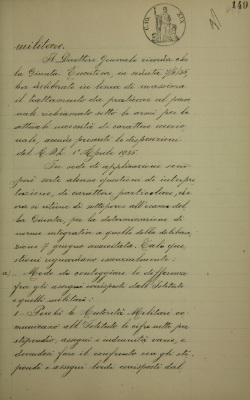 140
militare.
Il Direttore Generale ricorda che
la Giunta Esecutiva, in seduta 7/6/35,
ha deliberato in linea di massima
il trattamento da praticare al perso-
nale richiamato sotto le armi per le
attuali necessità di carattere eccezio-
nale, avendo presente le disposizioni
del 1° Aprile 1935.
In sede di applicazione sono
però sorte alcune questioni di interpre-
tazione, di carattere particolare, che
ora si ritiene di sottoporre all'esame del-
la Giunta, per la determinazione di
norme integrative a quelle della delibera-
zione 7 giugno suaccitata. Tali que-
stioni riguardano essenzialmente:
a) Modo di conteggiare le differenze
fra gli assegni corrisposti dall'Istituto
e quelli militari:
1 - Perchè le Autorità Militari co-
municano all'Istituto le cifre nette per
stipendio, assegni e indennità varie, e
dovendosi fare il confronto con gli sti-
pendi e assegni lordi corrisposti dal